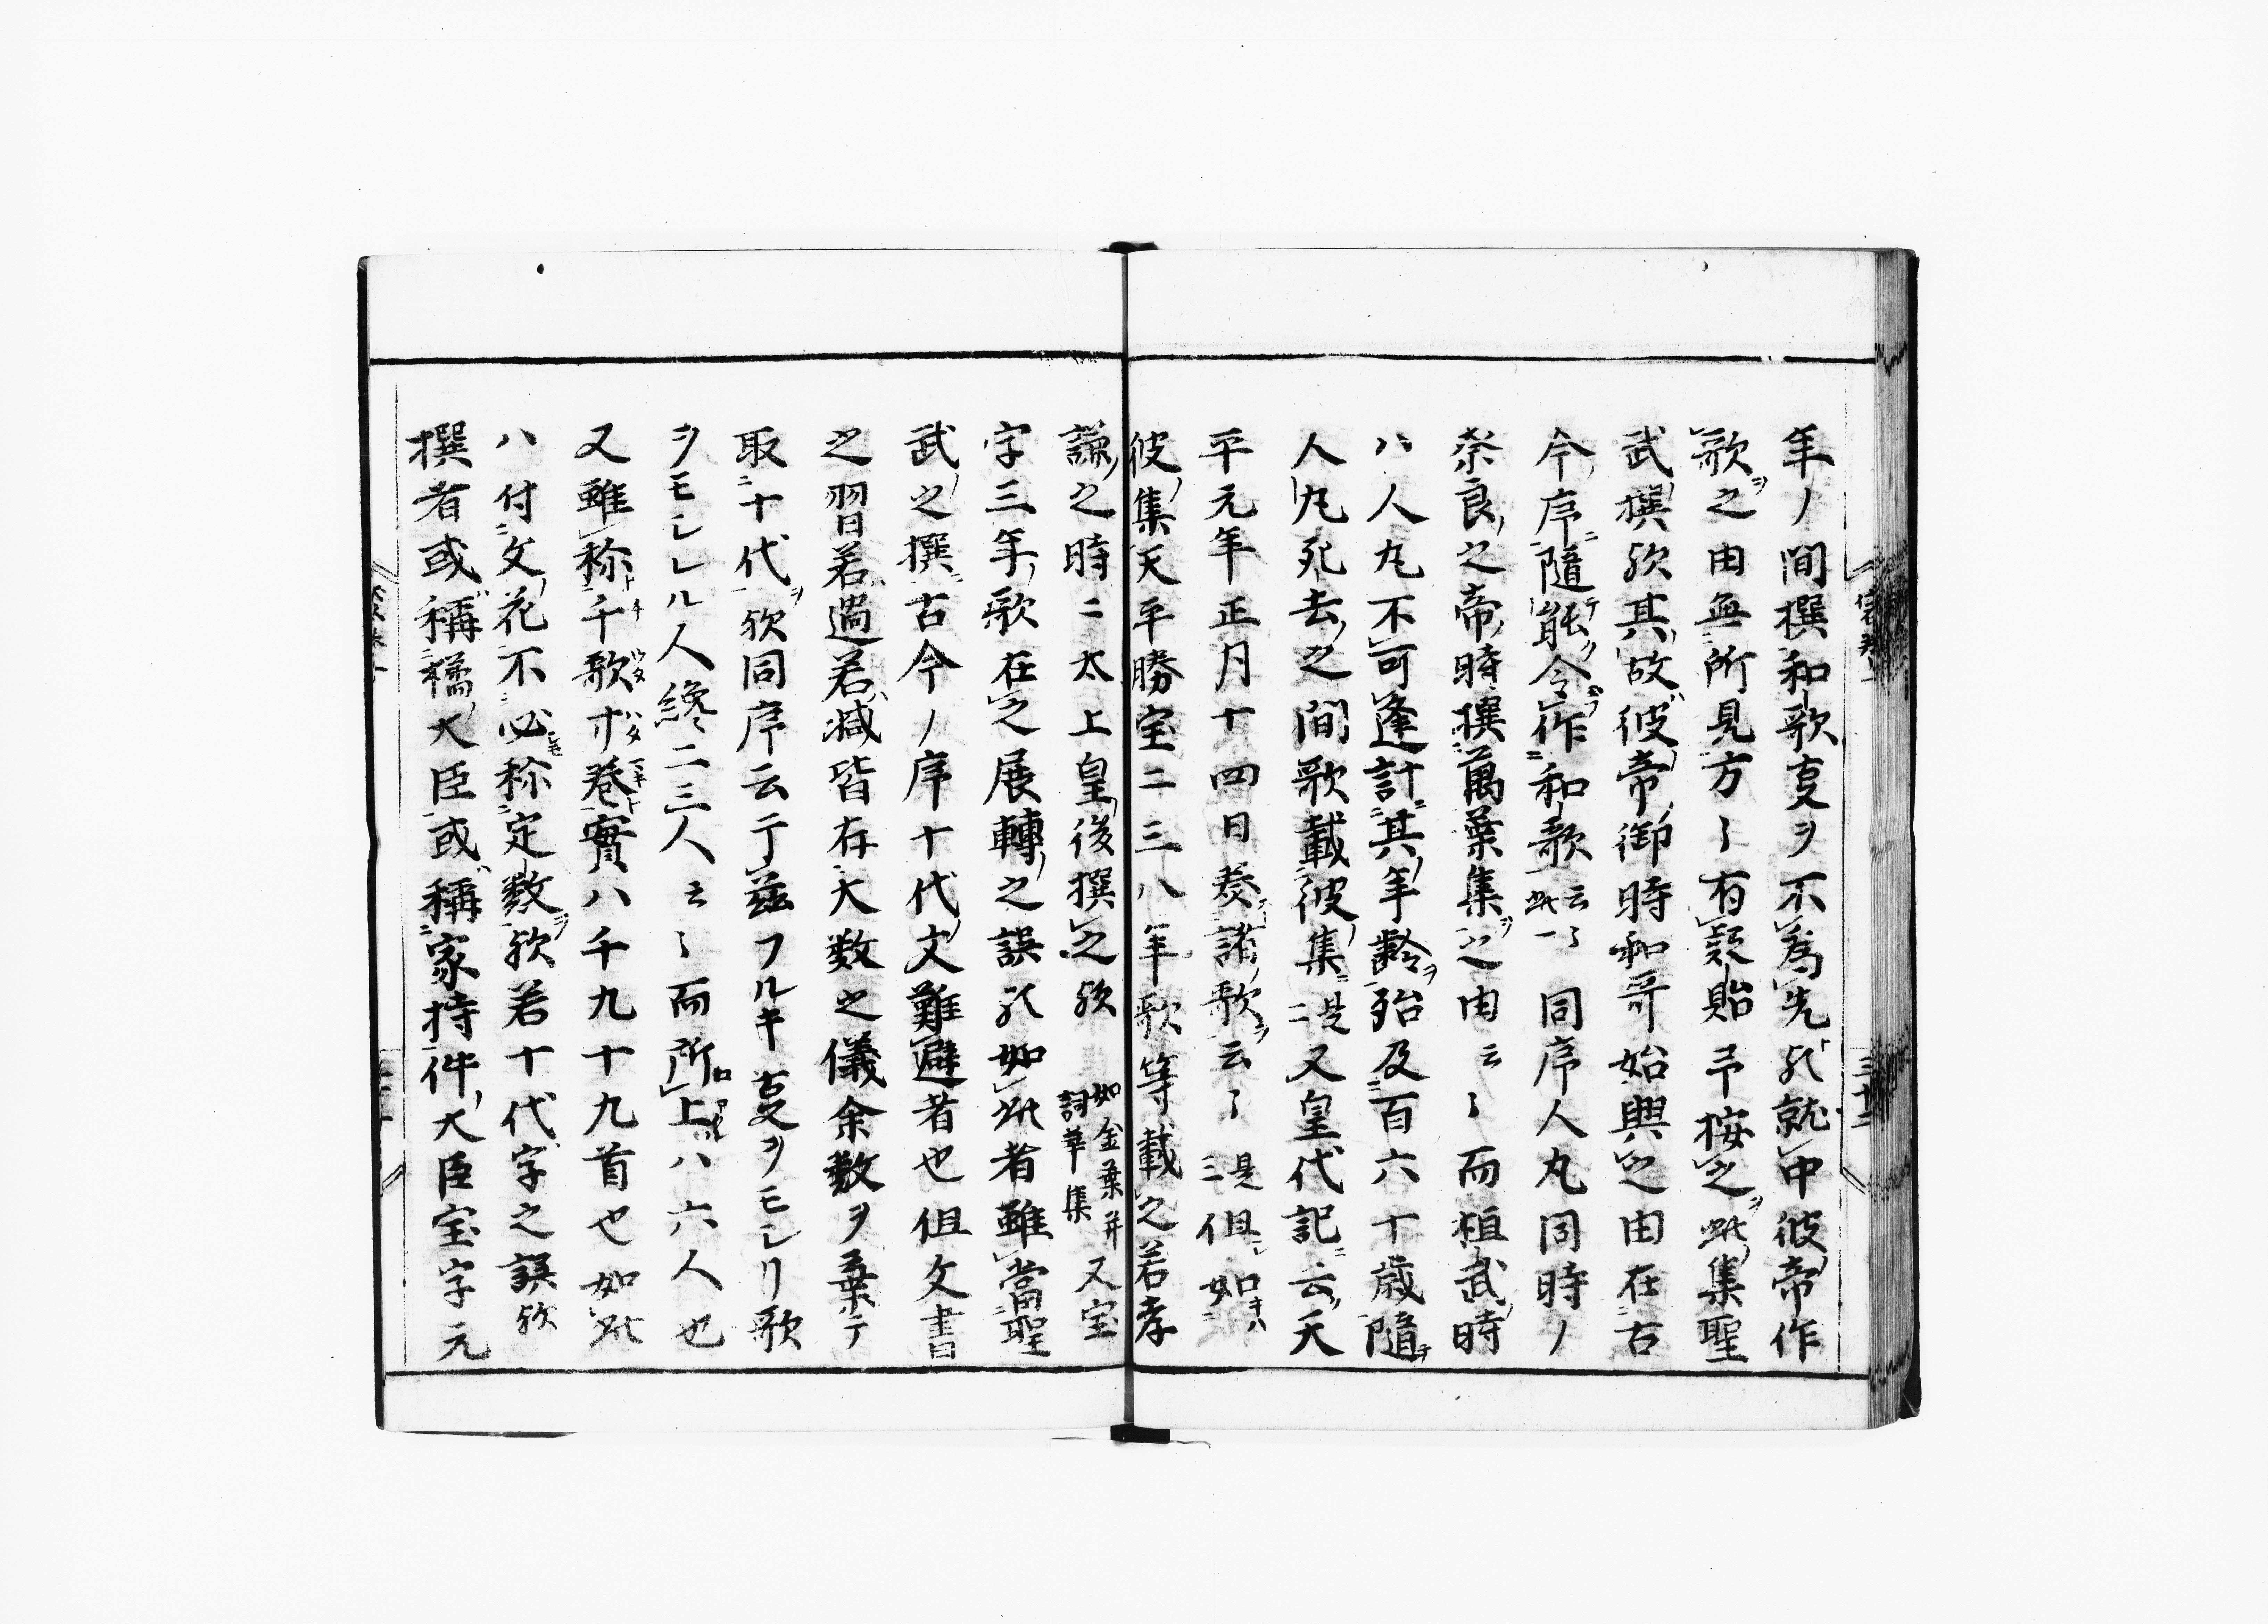 年ノ間撰和歌叓ヲ不為先况就中彼帝作
歌之由無所見方〻有疑貽弖按之此集聖
武撰欤其故彼帝御時和哥始興之由在古
今序隨能令作和歌云〻此一同序人丸同時ノ
奈良之帝時撰萬葉集之由云〻而桓武時
ハ人丸不可逢計其年齡殆及百六十歳隨
人丸死去之間歌載彼集是二又皇代記云天
平元年正月十四日奏諸歌云〻是三但如
彼集天平勝宝二三八年歌等載之若孝
謙之時ニ太上皇後撰之欤如金葉并詞華集又宝
字三年歌在之展轉之誤况如此者雖當聖
武之撰古今ノ序十代丈難避者也但文書
之習若過若减皆存大数之儀余数ヲ棄テ
取十代欤同序云丁茲フルキ叓ヲモシリ歌
ヲモシレル人纔二三人云〻而所上ハ六人也
又雖称千歌廿巻實八千九十九首也如此
ハ付文花不必称定数欤若十代字之誤欤
撰者或稱橘大臣或稱家持件大臣宝字元